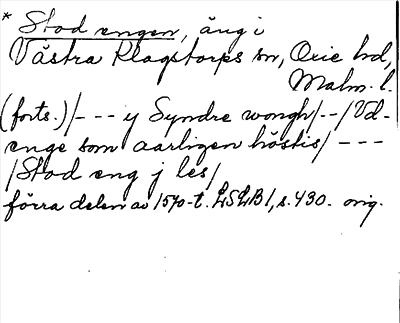 * Stod engen, äng i
Västra Klagstorps sn, Oxie hd,
Malm. l.
(forts.) /--- y Syndre wongh/--/Vd-
enge som aarligen höstis/ ---
/Stod eng j les/
förra delen av 1570-t. LSLB 1, s. 430. orig.